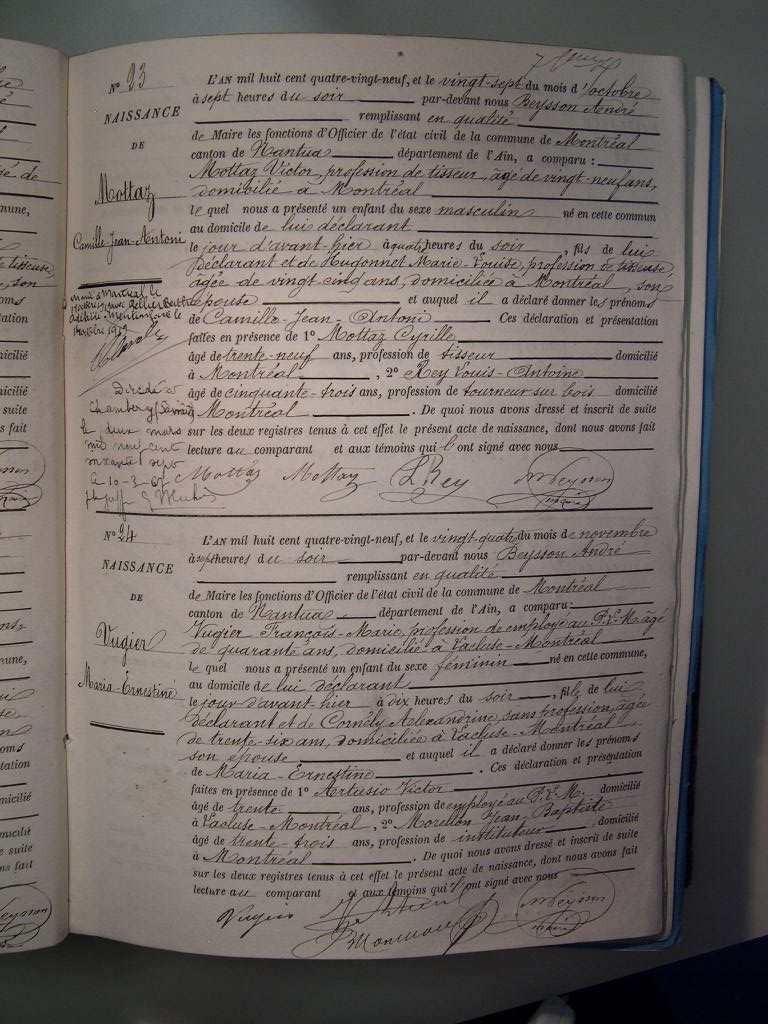 N° 23
NAISSANCE
DE
Mottaz
Camille-Jean-Antoni
L'AN mil huit cent quatre-vingt-neuf, et le vingt-sept du mois d'octobre
à sept heures du soir par-devant nous Beysson André
remplissant en qualité
de Maire les fonctions d'Officier de l'état civil de la commune de Montréal
canton de Nantua département de l'Ain, a comparu :
Mottaz Victor, profession de tisseur, âgé de vingt-neuf ans,
domicilié à Montréal
le quel nous a présenté un enfant du sexe masculin né en cette commun
au domicile de lui déclarant
le jour d'avant-hier à quatre heures du soir, fils de lui
Déclarant et de Hugonnet Marie-Louise, profession de tisseuse,
âgée de vingt cinq ans, domiciliée à Montréal, son
épouse et auquel il a déclaré donner les prénoms
de Camille-Jean-Antoni Ces déclaration et présentation
faites en présence de 1° Mottaz Cyrille
âgé de trente-neuf ans, profession de tisseur domicilié
à Montréal, 2° Rey Louis-Antoine
âgé de cinquante-trois ans, profession de tourneur sur bois domicilié
à Montréal. De quoi nous avons dressé et inscrit de suite
sur les deux registres tenus à cet effet le présent acte de naissance, dont nous avons fait
lecture au comparant et aux témoins qui l'ont signé avec nous
Mottaz Mottaz L Rey Beysson
maire
Décédé à
Chambéry (Savoie)
le deux mars
mil neuf cent
soixante sept
le 10-3-67
N° 24
NAISSANCE
DE
Vugier
Maria-Ernestine
L'AN mil huit cent quatre-vingt-neuf, et le vingt-quatre du mois de novembre
à sept heures du soir par-devant nous Beysson André
remplissant en qualité
de Maire les fonctions d'Officier de l'état civil de la commune de Montréal
canton de Nantua département de l'Ain, a comparu :
Vugier François-Marie, profession de employé au P.L.M. âgé
de quarante ans, domicilié à Lacluse-Montréal
le quel nous a présenté un enfant du sexe féminin né en cette commune,
au domicile de lui déclarant
le jour d'avant-hier à dix heures du soir, fille de lui
Déclarant et de Cornély Alexandrine, sans profession, âgée
de trente-six ans, domiciliée à Lacluse-Montréal
son épouse et auquel il a déclaré donner les prénoms
de Maria-Ernestine. Ces déclaration et présentation
faites en présence de 1° Artusio Victor
âgé de trente ans, profession de employé au P.L.M. domicilié
à Lacluse-Montréal, 2° Morellon Jean-Baptiste
âgé de trente-trois ans, profession de instituteur domicilié
à Montréal. De quoi nous avons dressé et inscrit de suite
sur les deux registres tenus à cet effet le présent acte de naissance, dont nous avons fait
lecture au comparant et aux témoins qui l'ont signé avec nous
Vugier Beysson
maire